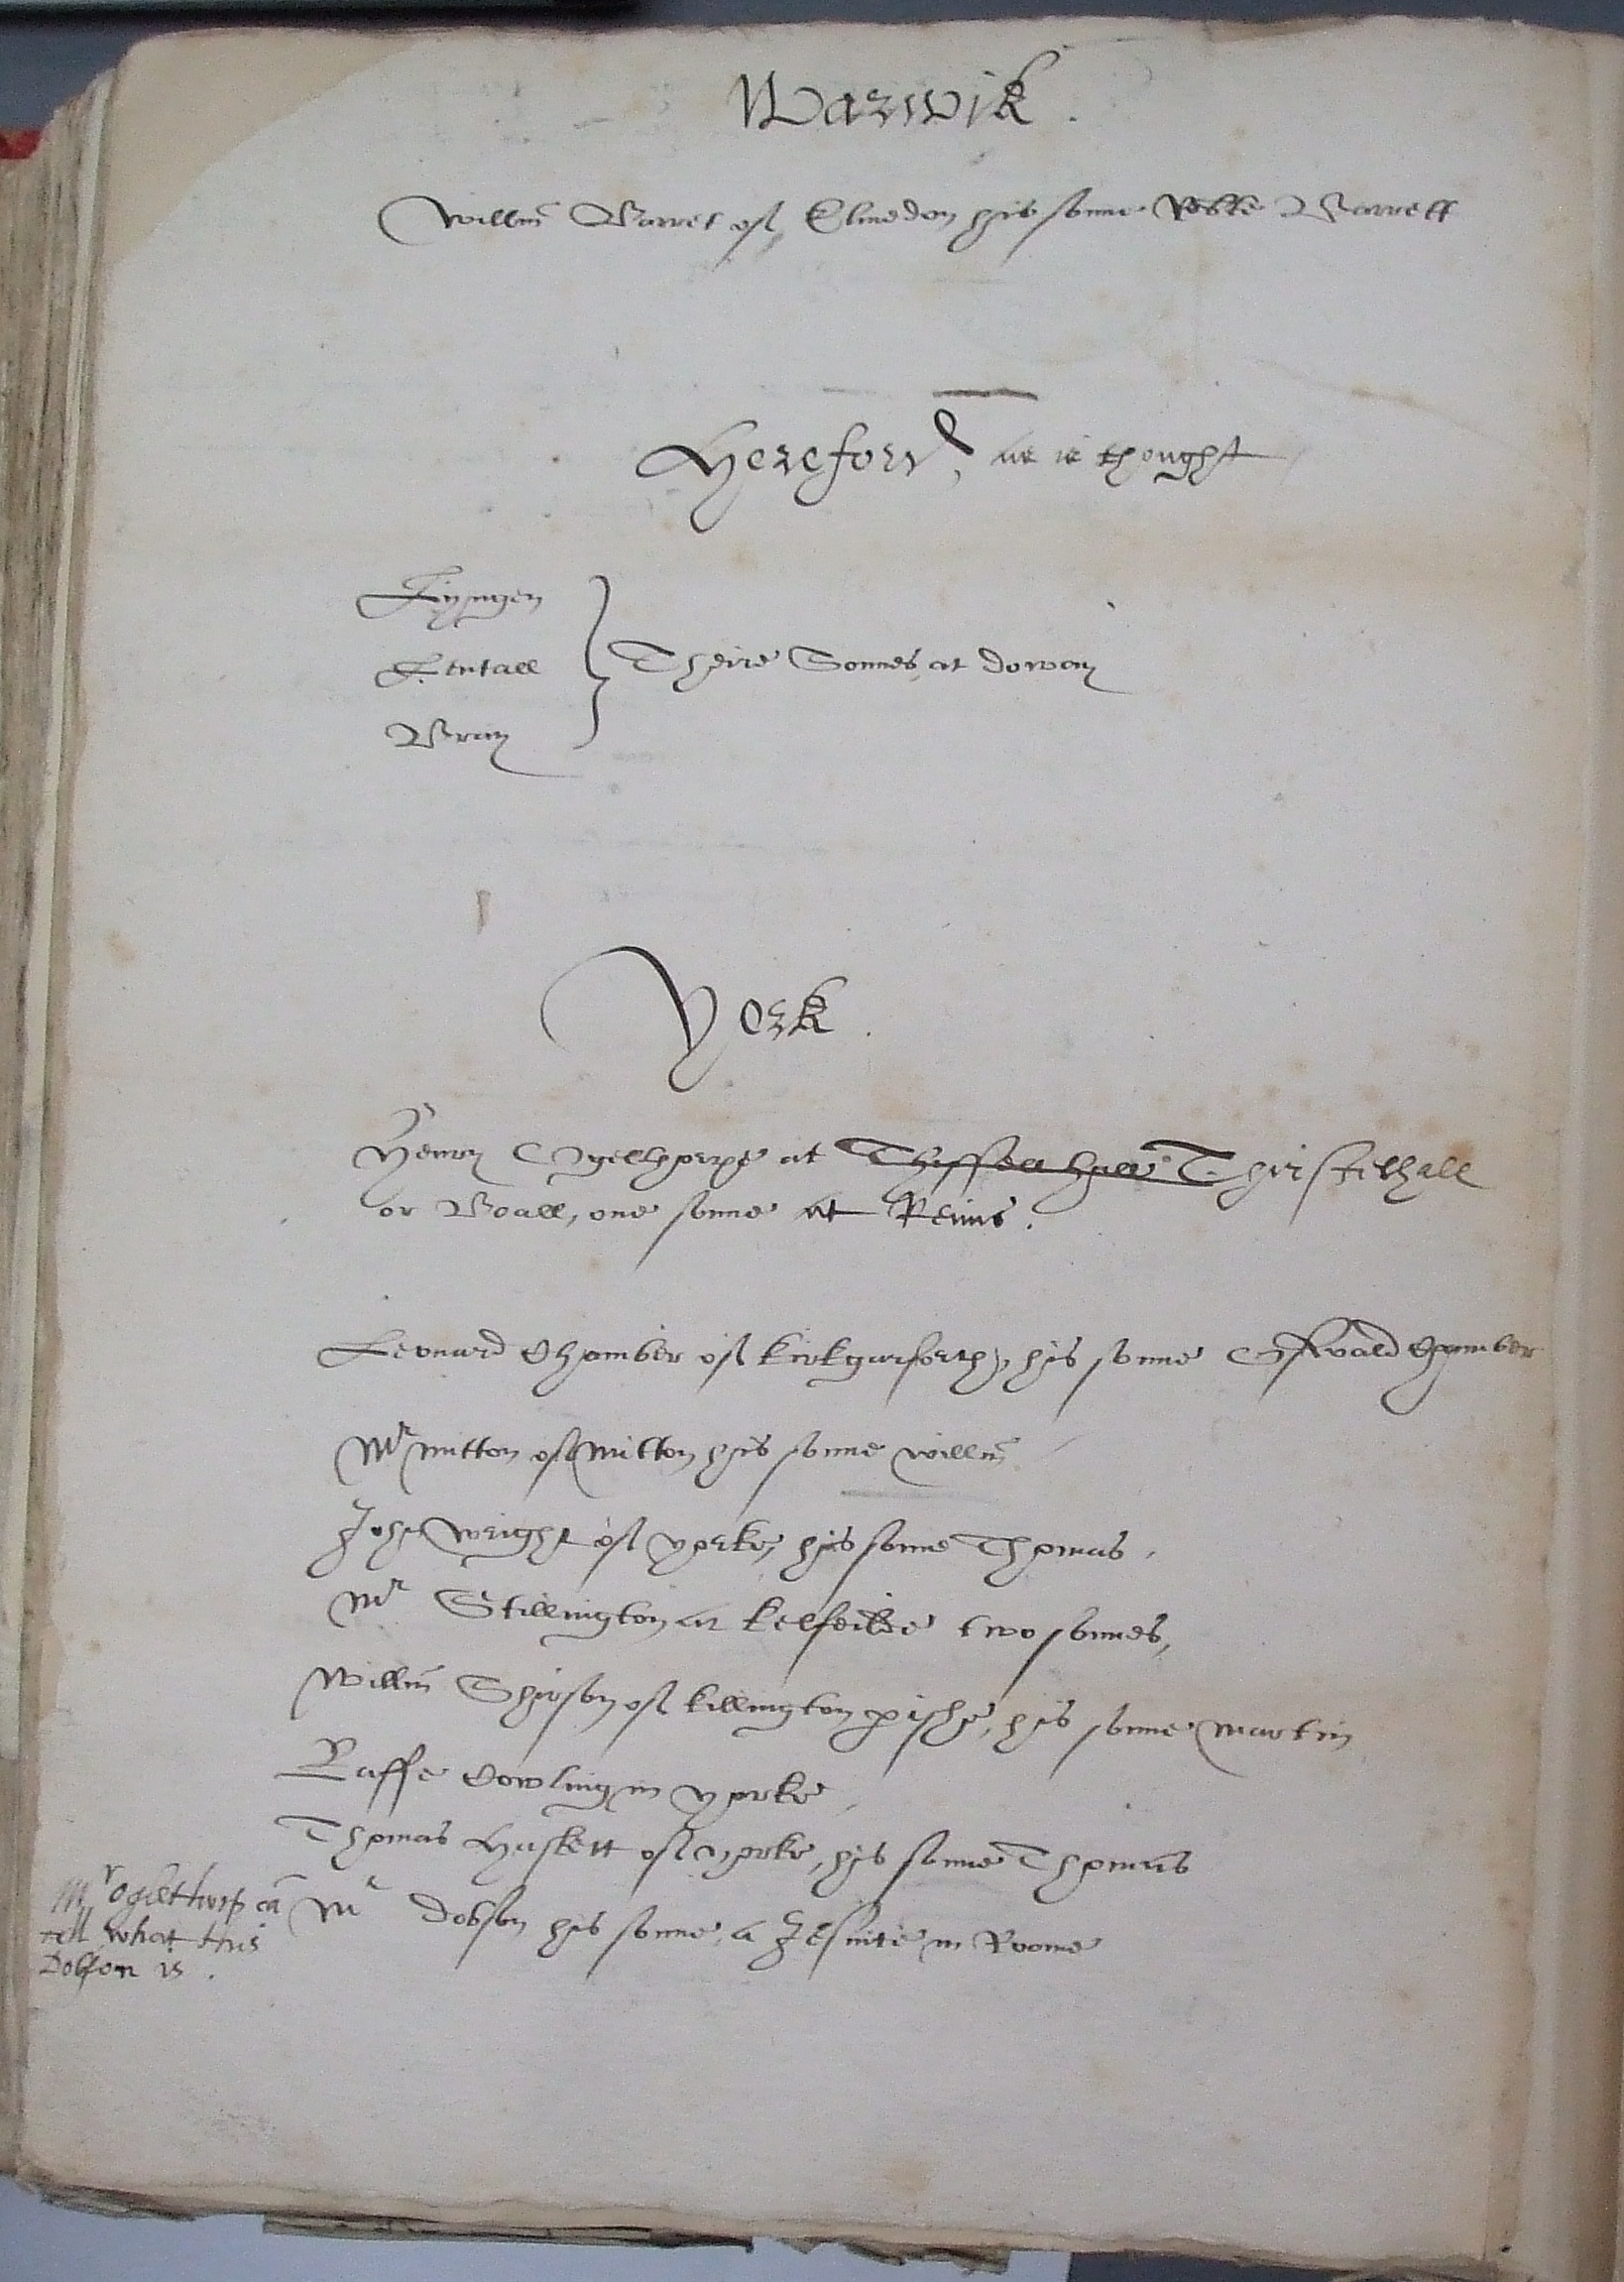 Warwik .
Willm Barret of Elmedon his sonne Robte Barrett
Hereford, as is thought
Lyngen
Kentall
Bray
Theire Sonnes at doway
York .
Henry Ogelthorpe at Thirstelhall
or Boall, one sonne at Reims .
Leonard Chamber of kirkgarforth, his sonne Oswald Chamber
Mr mitton of Mitton his sonne willm
John wright of yorke, his sonne Thomas .
Mr Stillington at kelfeilde two sonnes,
Willm Shirson of killington pishe, his sonne Martin
Raffe Cowling in yorke
Thomas Haskett of yorke, his sonne Thomas
Mr dobson his sonne, a Jesuite in Roome
Mr ogilthorp can
tell what this
Dobson is .